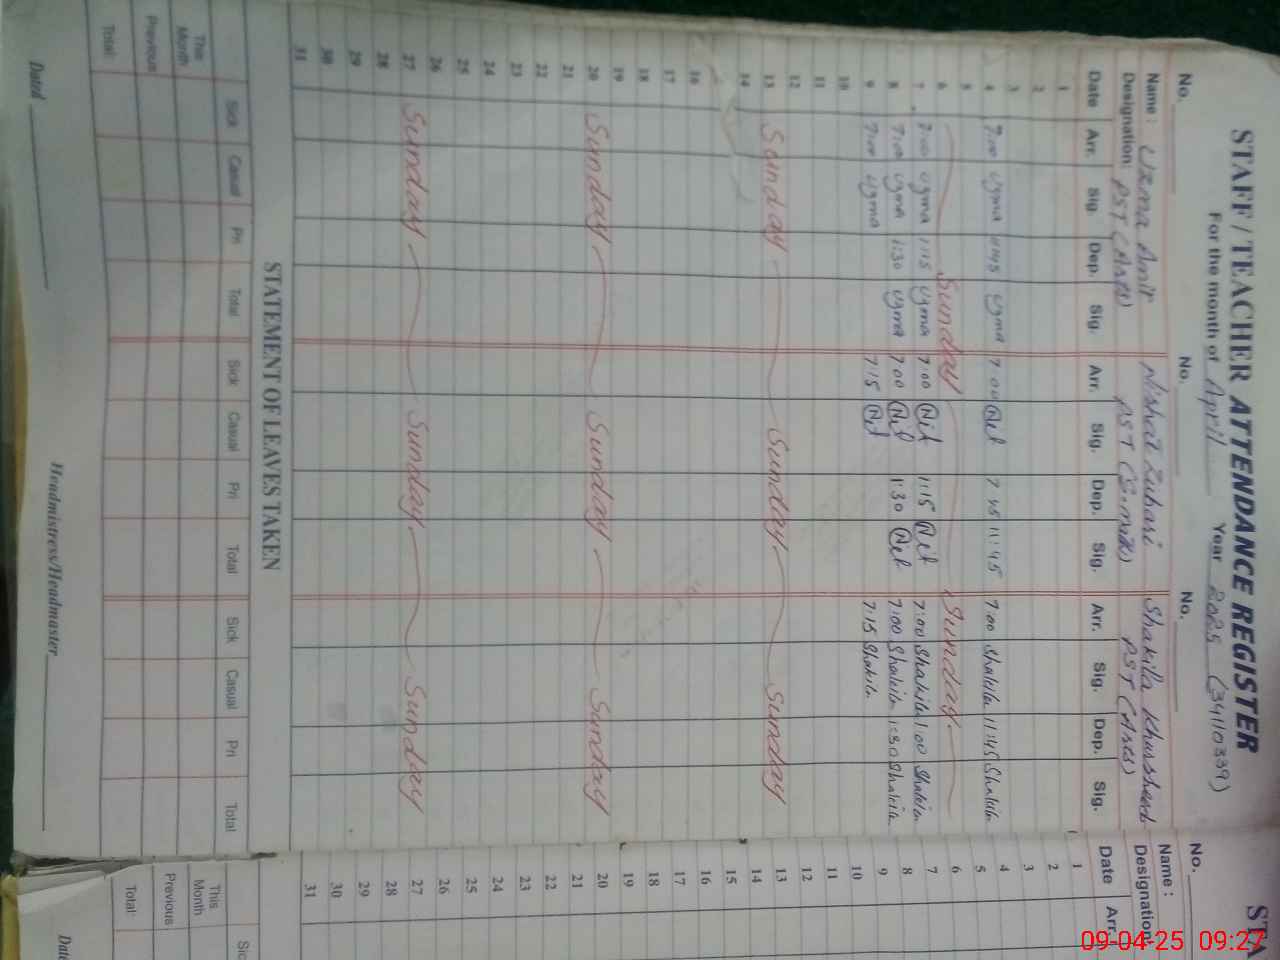 STAFF / TEACHER ATTENDANCE REGISTER
For the month of April Year 2025 (34110339)
No. No. No.
Name : Uzma Amir Nishat Zubari Shakila Khursheed
Designation: PST ( ) PST ( ) PST ( )
Date Arr. Sig. Dep. Sig. Arr. Sig. Dep. Sig. Arr. Sig. Dep. Sig.
1
2
3
4 7:00 uzma 11:45 uzma 7:00 7 45 11:45 7:00 Shakila 11:45 Shakila
5
6 Sunday Sunday
7 7:00 uzma 1:15 uzma 7:00 1:15 7:00 Shakila 1:00 Shakila
8 7:00 uzma 1:30 uzma 7:00 1:30 7:00 Shakila 1:30 Shakila
9 7:00 uzma 7:15 7:15 Shakila
10
11
12
13 Sunday Sunday Sunday
14
16
17
18
19
20 Sunday Sunday Sunday
21
22
23
24
25
26
27 Sunday Sunday Sunday
28
29
30
31
STATEMENT OF LEAVES TAKEN
Sick Casual Pri Total Sick Casual Pri Total Sick Casual Pri Total
This Month
Previous
Total:
Dated Headmistress/Headmaster
STA
No.
Name :
Designation
Date Arr.
1
2
3
4
5
6
7
8
9
10
11
12
13
14
15
16
17
18
19
20
21
22
23
24
25
26
27
28
29
30
31
Sic
This Month
Previous
Total:
Date
09-04-25 09:27